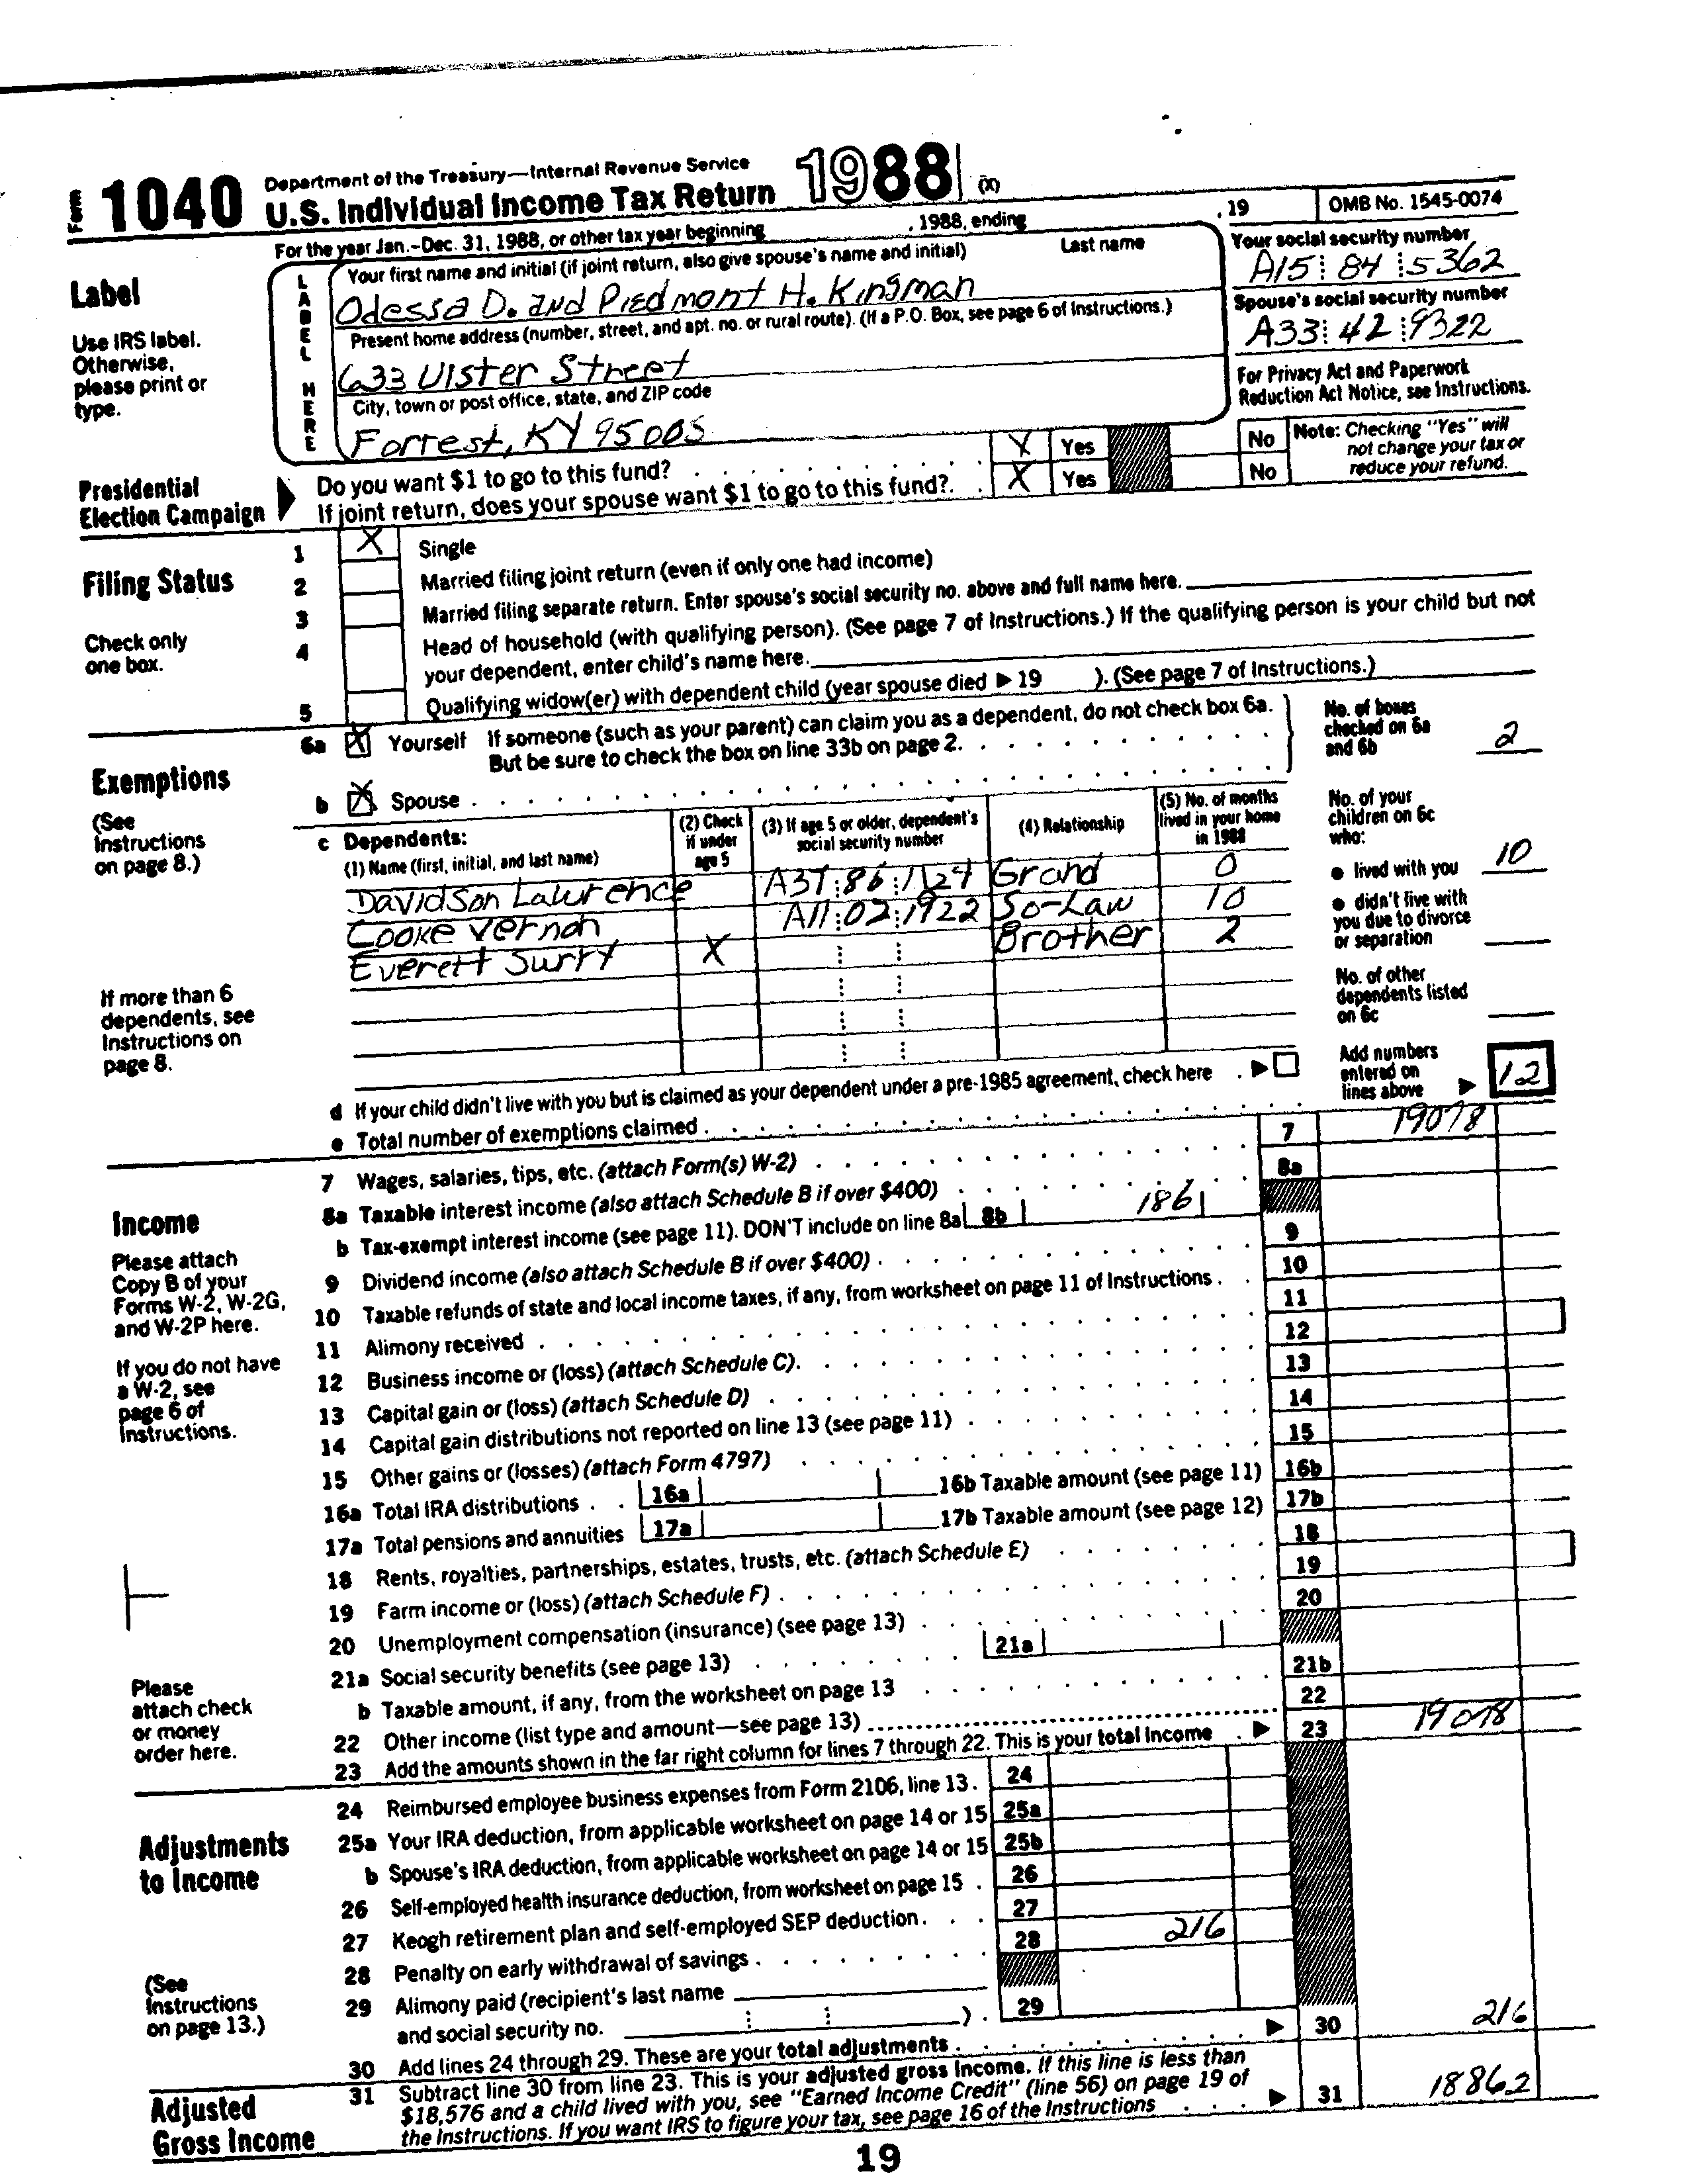 Form 1040 Department of the Treasury—Internal Revenue Service
U.S. Individual Income Tax Return 1988 (X)
For the year Jan.–Dec. 31, 1988, or other tax year beginning , 1988, ending , 19 OMB No. 1545-0074
Label
Use IRS label.
Otherwise,
please print or
type.
LABEL HERE
Your first name and initial (if joint return, also give spouse's name and initial) Last name
Odessa D. and Piedmont H. Kingman
Your social security number
A15 84 5362
Present home address (number, street, and apt. no. or rural route). (If a P.O. Box, see page 6 of Instructions.)
633 Ulster Street
Spouse's social security number
A33 42 9322
City, town or post office, state, and ZIP code
Forrest, KY 95005
For Privacy Act and Paperwork
Reduction Act Notice, see Instructions.
Presidential
Election Campaign
Do you want $1 to go to this fund? X Yes No
If joint return, does your spouse want $1 to go to this fund? X Yes No
Note: Checking "Yes" will
not change your tax or
reduce your refund.
Filing Status
Check only
one box.
1 X Single
2 Married filing joint return (even if only one had income)
3 Married filing separate return. Enter spouse's social security no. above and full name here.
4 Head of household (with qualifying person). (See page 7 of Instructions.) If the qualifying person is your child but not
your dependent, enter child's name here.
5 Qualifying widow(er) with dependent child (year spouse died ▶ 19 ). (See page 7 of Instructions.)
Exemptions
(See
Instructions
on page 8.)
6a X Yourself If someone (such as your parent) can claim you as a dependent, do not check box 6a.
But be sure to check the box on line 33b on page 2.
b X Spouse
No. of boxes
checked on 6a
and 6b 2
c Dependents:
(1) Name (first, initial, and last name)
(2) Check
if under
age 5
(3) If age 5 or older, dependent's
social security number
(4) Relationship
(5) No. of months
lived in your home
in 1988
Davidson Lawrence A37 86 1124 Grand 0
Cooke Vernon A11 02 1922 So-Law 10
Everett Surry X Brother 2
No. of your
children on 6c
who:
● lived with you 10
● didn't live with
you due to divorce
or separation
No. of other
dependents listed
on 6c
If more than 6
dependents, see
Instructions on
page 8.
d If your child didn't live with you but is claimed as your dependent under a pre-1985 agreement, check here ▶
e Total number of exemptions claimed
Add numbers
entered on
lines above ▶ 12
Income
Please attach
Copy B of your
Forms W-2, W-2G,
and W-2P here.
If you do not have
a W-2, see
page 6 of
Instructions.
Please
attach check
or money
order here.
7 Wages, salaries, tips, etc. (attach Form(s) W-2) 7 19078
8a Taxable interest income (also attach Schedule B if over $400) 8a
b Tax-exempt interest income (see page 11). DON'T include on line 8a 8b 186
9 Dividend income (also attach Schedule B if over $400) 9
10 Taxable refunds of state and local income taxes, if any, from worksheet on page 11 of Instructions 10
11 Alimony received 11
12 Business income or (loss) (attach Schedule C) 12
13 Capital gain or (loss) (attach Schedule D) 13
14 Capital gain distributions not reported on line 13 (see page 11) 14
15 Other gains or (losses) (attach Form 4797) 15
16a Total IRA distributions 16a 16b Taxable amount (see page 11) 16b
17a Total pensions and annuities 17a 17b Taxable amount (see page 12) 17b
18 Rents, royalties, partnerships, estates, trusts, etc. (attach Schedule E) 18
19 Farm income or (loss) (attach Schedule F) 19
20 Unemployment compensation (insurance) (see page 13) 20
21a Social security benefits (see page 13) 21a
b Taxable amount, if any, from the worksheet on page 13 21b
22 Other income (list type and amount—see page 13) 22
23 Add the amounts shown in the far right column for lines 7 through 22. This is your total income ▶ 23 19078
Adjustments
to Income
(See
Instructions
on page 13.)
24 Reimbursed employee business expenses from Form 2106, line 13 24
25a Your IRA deduction, from applicable worksheet on page 14 or 15 25a
b Spouse's IRA deduction, from applicable worksheet on page 14 or 15 25b
26 Self-employed health insurance deduction, from worksheet on page 15 26
27 Keogh retirement plan and self-employed SEP deduction 27
28 Penalty on early withdrawal of savings 28 216
29 Alimony paid (recipient's last name
and social security no. ) 29
30 Add lines 24 through 29. These are your total adjustments ▶ 30 216
Adjusted
Gross Income
31 Subtract line 30 from line 23. This is your adjusted gross income. If this line is less than
$18,576 and a child lived with you, see "Earned Income Credit" (line 56) on page 19 of
the Instructions. If you want IRS to figure your tax, see page 16 of the Instructions ▶ 31 18862
19